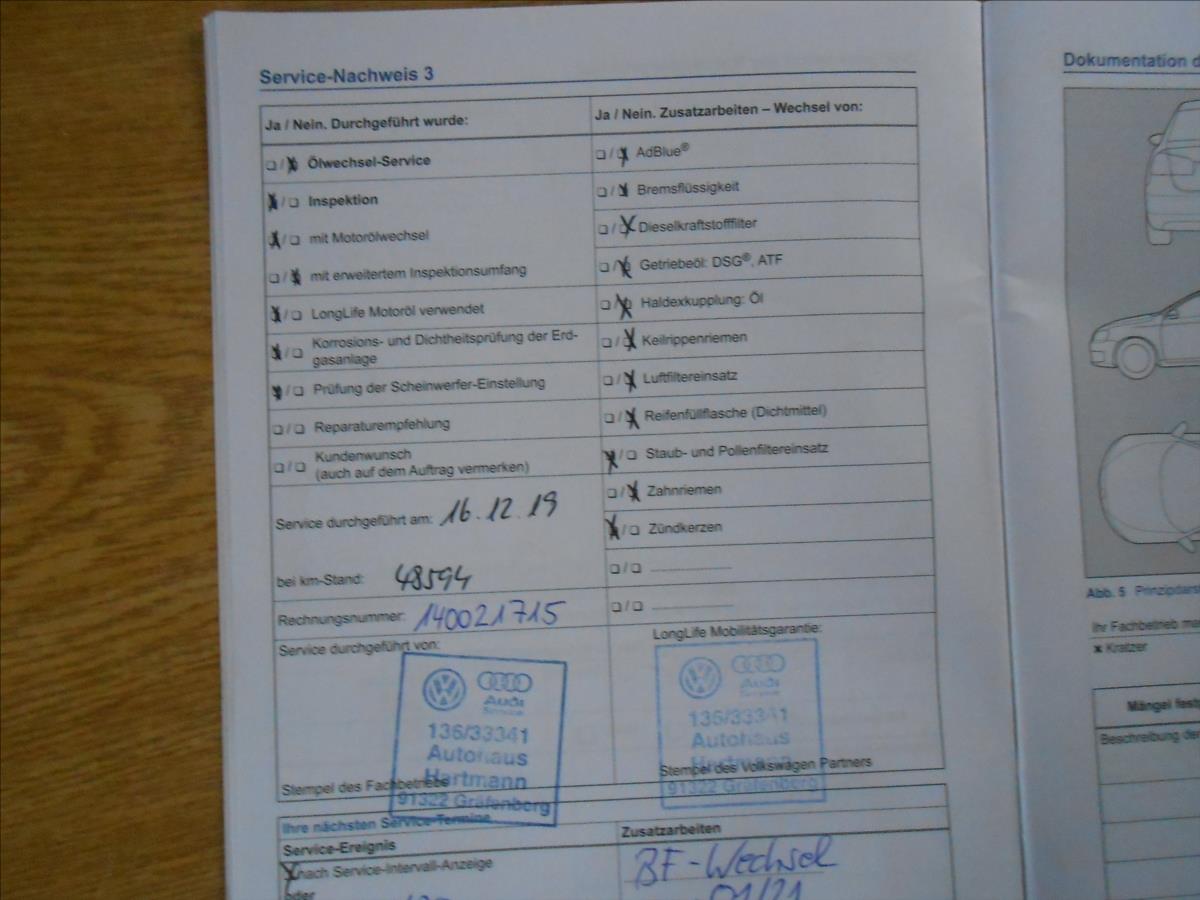 Service-Nachweis 3
Ja / Nein. Durchgeführt wurde:
Ölwechsel-Service
Inspektion
mit Motorölwechsel
mit erweitertem Inspektionsumfang
LongLife Motoröl verwendet
Korrosions- und Dichtheitsprüfung der Erd-
gasanlage
Prüfung der Scheinwerfer-Einstellung
Reparaturempfehlung
Kundenwunsch
(auch auf dem Auftrag vermerken)
Service durchgeführt am: 16.12.19
bei km-Stand: 48594
Rechnungsnummer: 140021715
Service durchgeführt von:
Audi
Service
136/33341
Autohaus
Hartmann
91322 Gräfenberg
Stempel des Fachbetriebs
Ja / Nein. Zusatzarbeiten – Wechsel von:
AdBlue®
Bremsflüssigkeit
Dieselkraftstofffilter
Getriebeöl: DSG®, ATF
Haldexkupplung: Öl
Keilrippenriemen
Luftfiltereinsatz
Reifenfüllflasche (Dichtmittel)
Staub- und Pollenfiltereinsatz
Zahnriemen
Zündkerzen
LongLife Mobilitätsgarantie:
Audi
Service
136/33341
Autohaus
Hartmann
91322 Gräfenberg
Stempel des Volkswagen Partners
Ihre nächsten Service-Termine
Service-Ereignis
nach Service-Intervall-Anzeige
oder
Zusatzarbeiten
BF-Wechsel
01/21
Dokumentation d
Abb. 5 Prinzipdars
Ihr Fachbetrieb ma
x Kratzer
Mängel fests
Beschreibung der